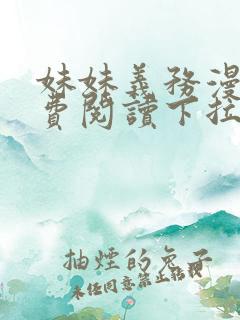 妹妹義務漫
費閱讀下拉
抽煙的兔子
未任同意禁止轉載